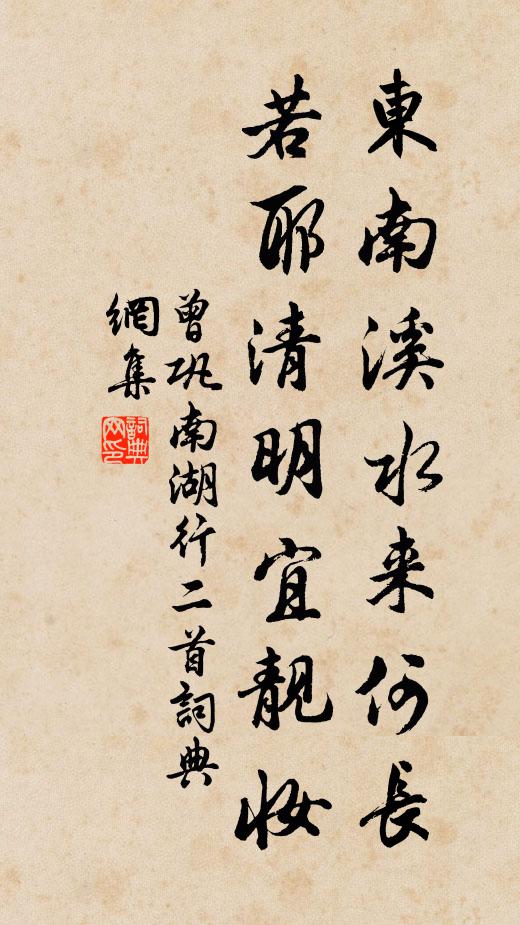 東南溪水来何長
若耶清明宜靚妝
曾巩南湖行二首詞典
網集
詞典网印